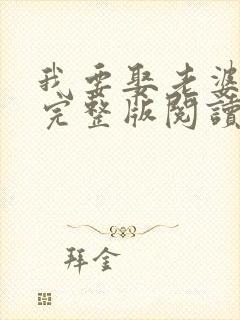 我要娶老婆
完整版閱讀
拜金